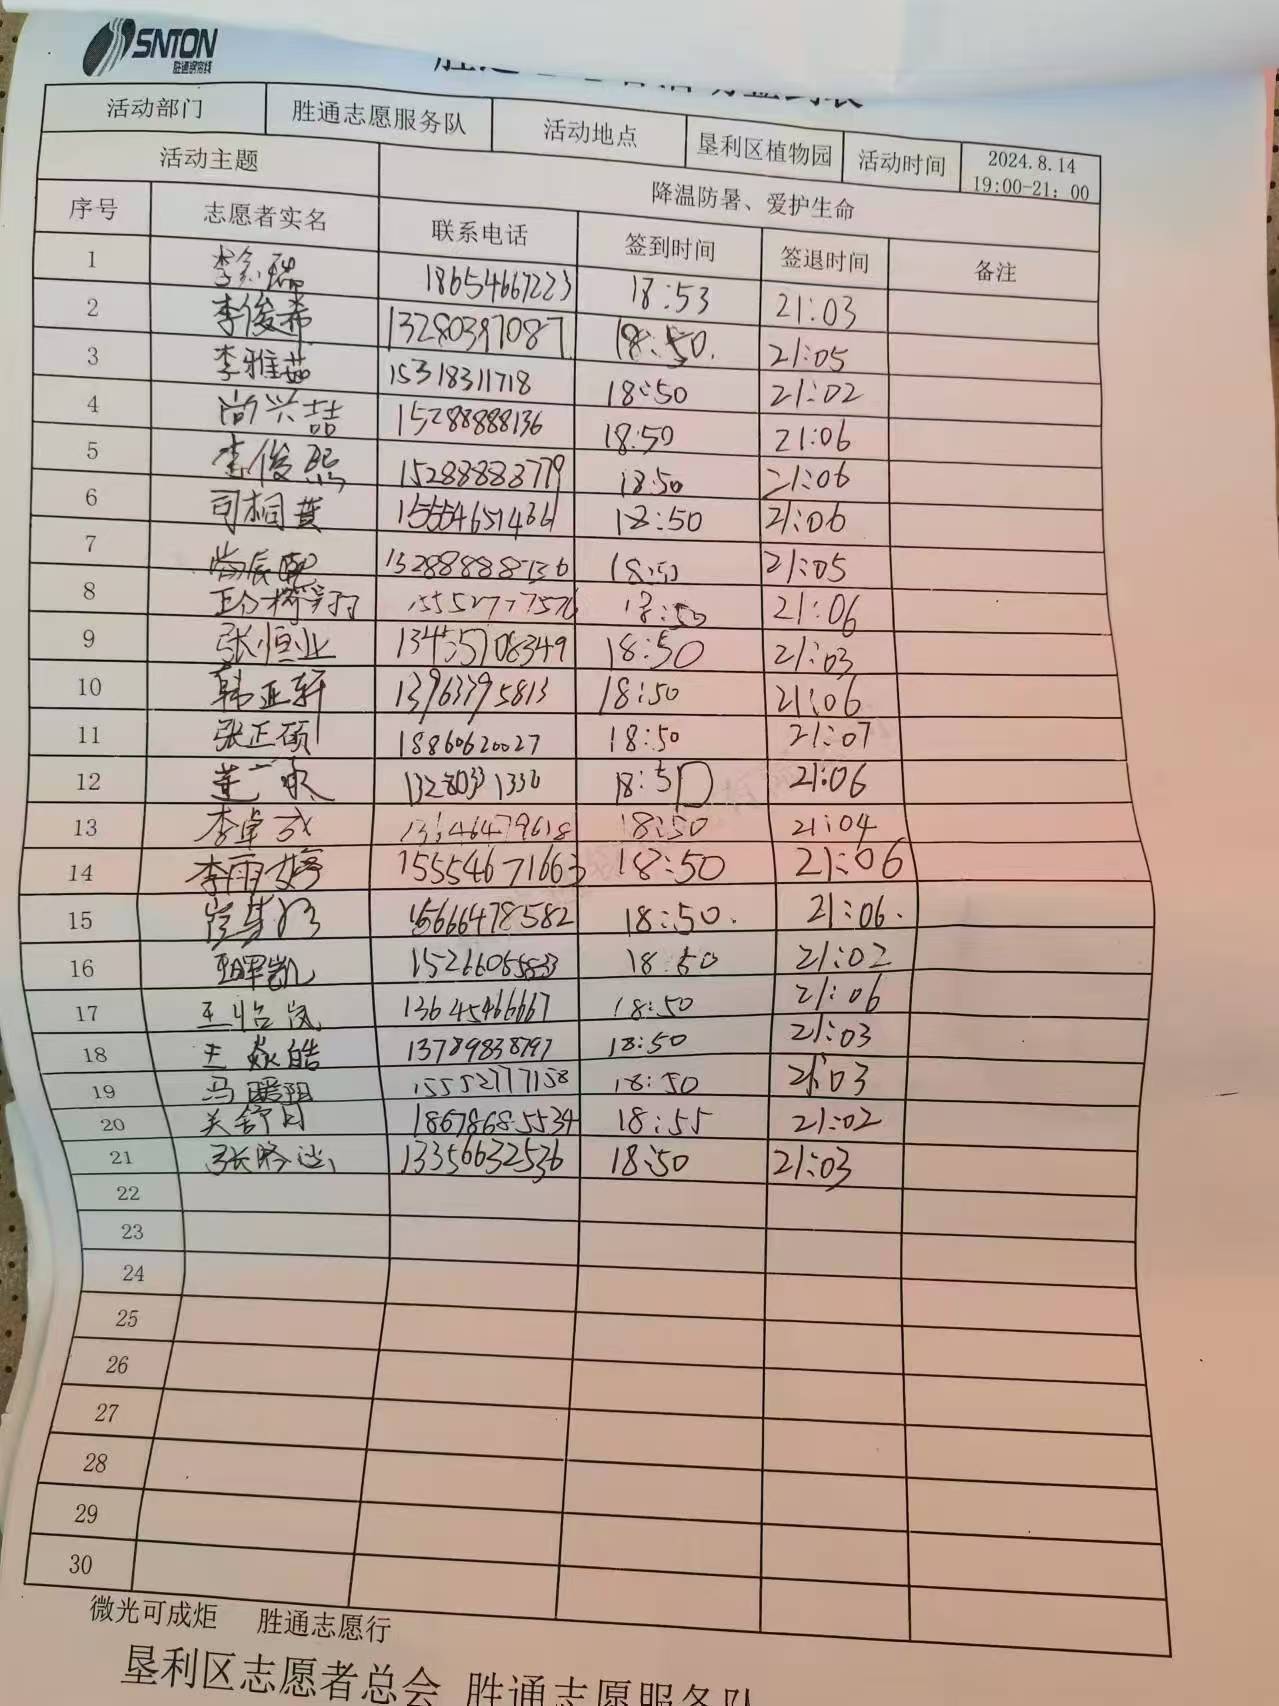 SNTON
胜通钢帘线
活动部门 胜通志愿服务队 活动地点 垦利区植物园 活动时间 2024.8.14 19:00-21:00
活动主题 降温防暑、爱护生命
序号 志愿者实名 联系电话 签到时间 签退时间 备注
1 18654667223 18:53 21:03
2 李俊希 13280397087 18:50. 21:05
3 李雅茹 15318311718 18:50 21:02
4 尚兴喆 15288888136 18:50 21:06
5 李俊熙 15288883779 18:50 21:06
6 司桐萁 18:50 21:06
7 尚辰熙 15288888136 18:50 21:05
8 15552777576 18:50 21:06
9 张恒业 13455708349 18:50 21:03
10 韩正轩 13963395813 18:50 21:06
11 张正硕 18860620027 18:50 21:07
12 13280331336 18:50 21:06
13 李卓 18:50 21:04
14 李雨婷 15554671663 18:50 21:06
15 15666478582 18:50. 21:06.
16 王晖凯 18:50 21:02
17 王怡岚 13645466667 18:50 21:06
18 王焱皓 13789838797 18:50 21:03
19 冯暖阳 15552777158 18:50 21:03
20 关舒月 18678685534 18:55 21:02
21 13356632536 18:50 21:03
22
23
24
25
26
27
28
29
30
微光可成炬 胜通志愿行
垦利区志愿者总会 胜通志愿服务队